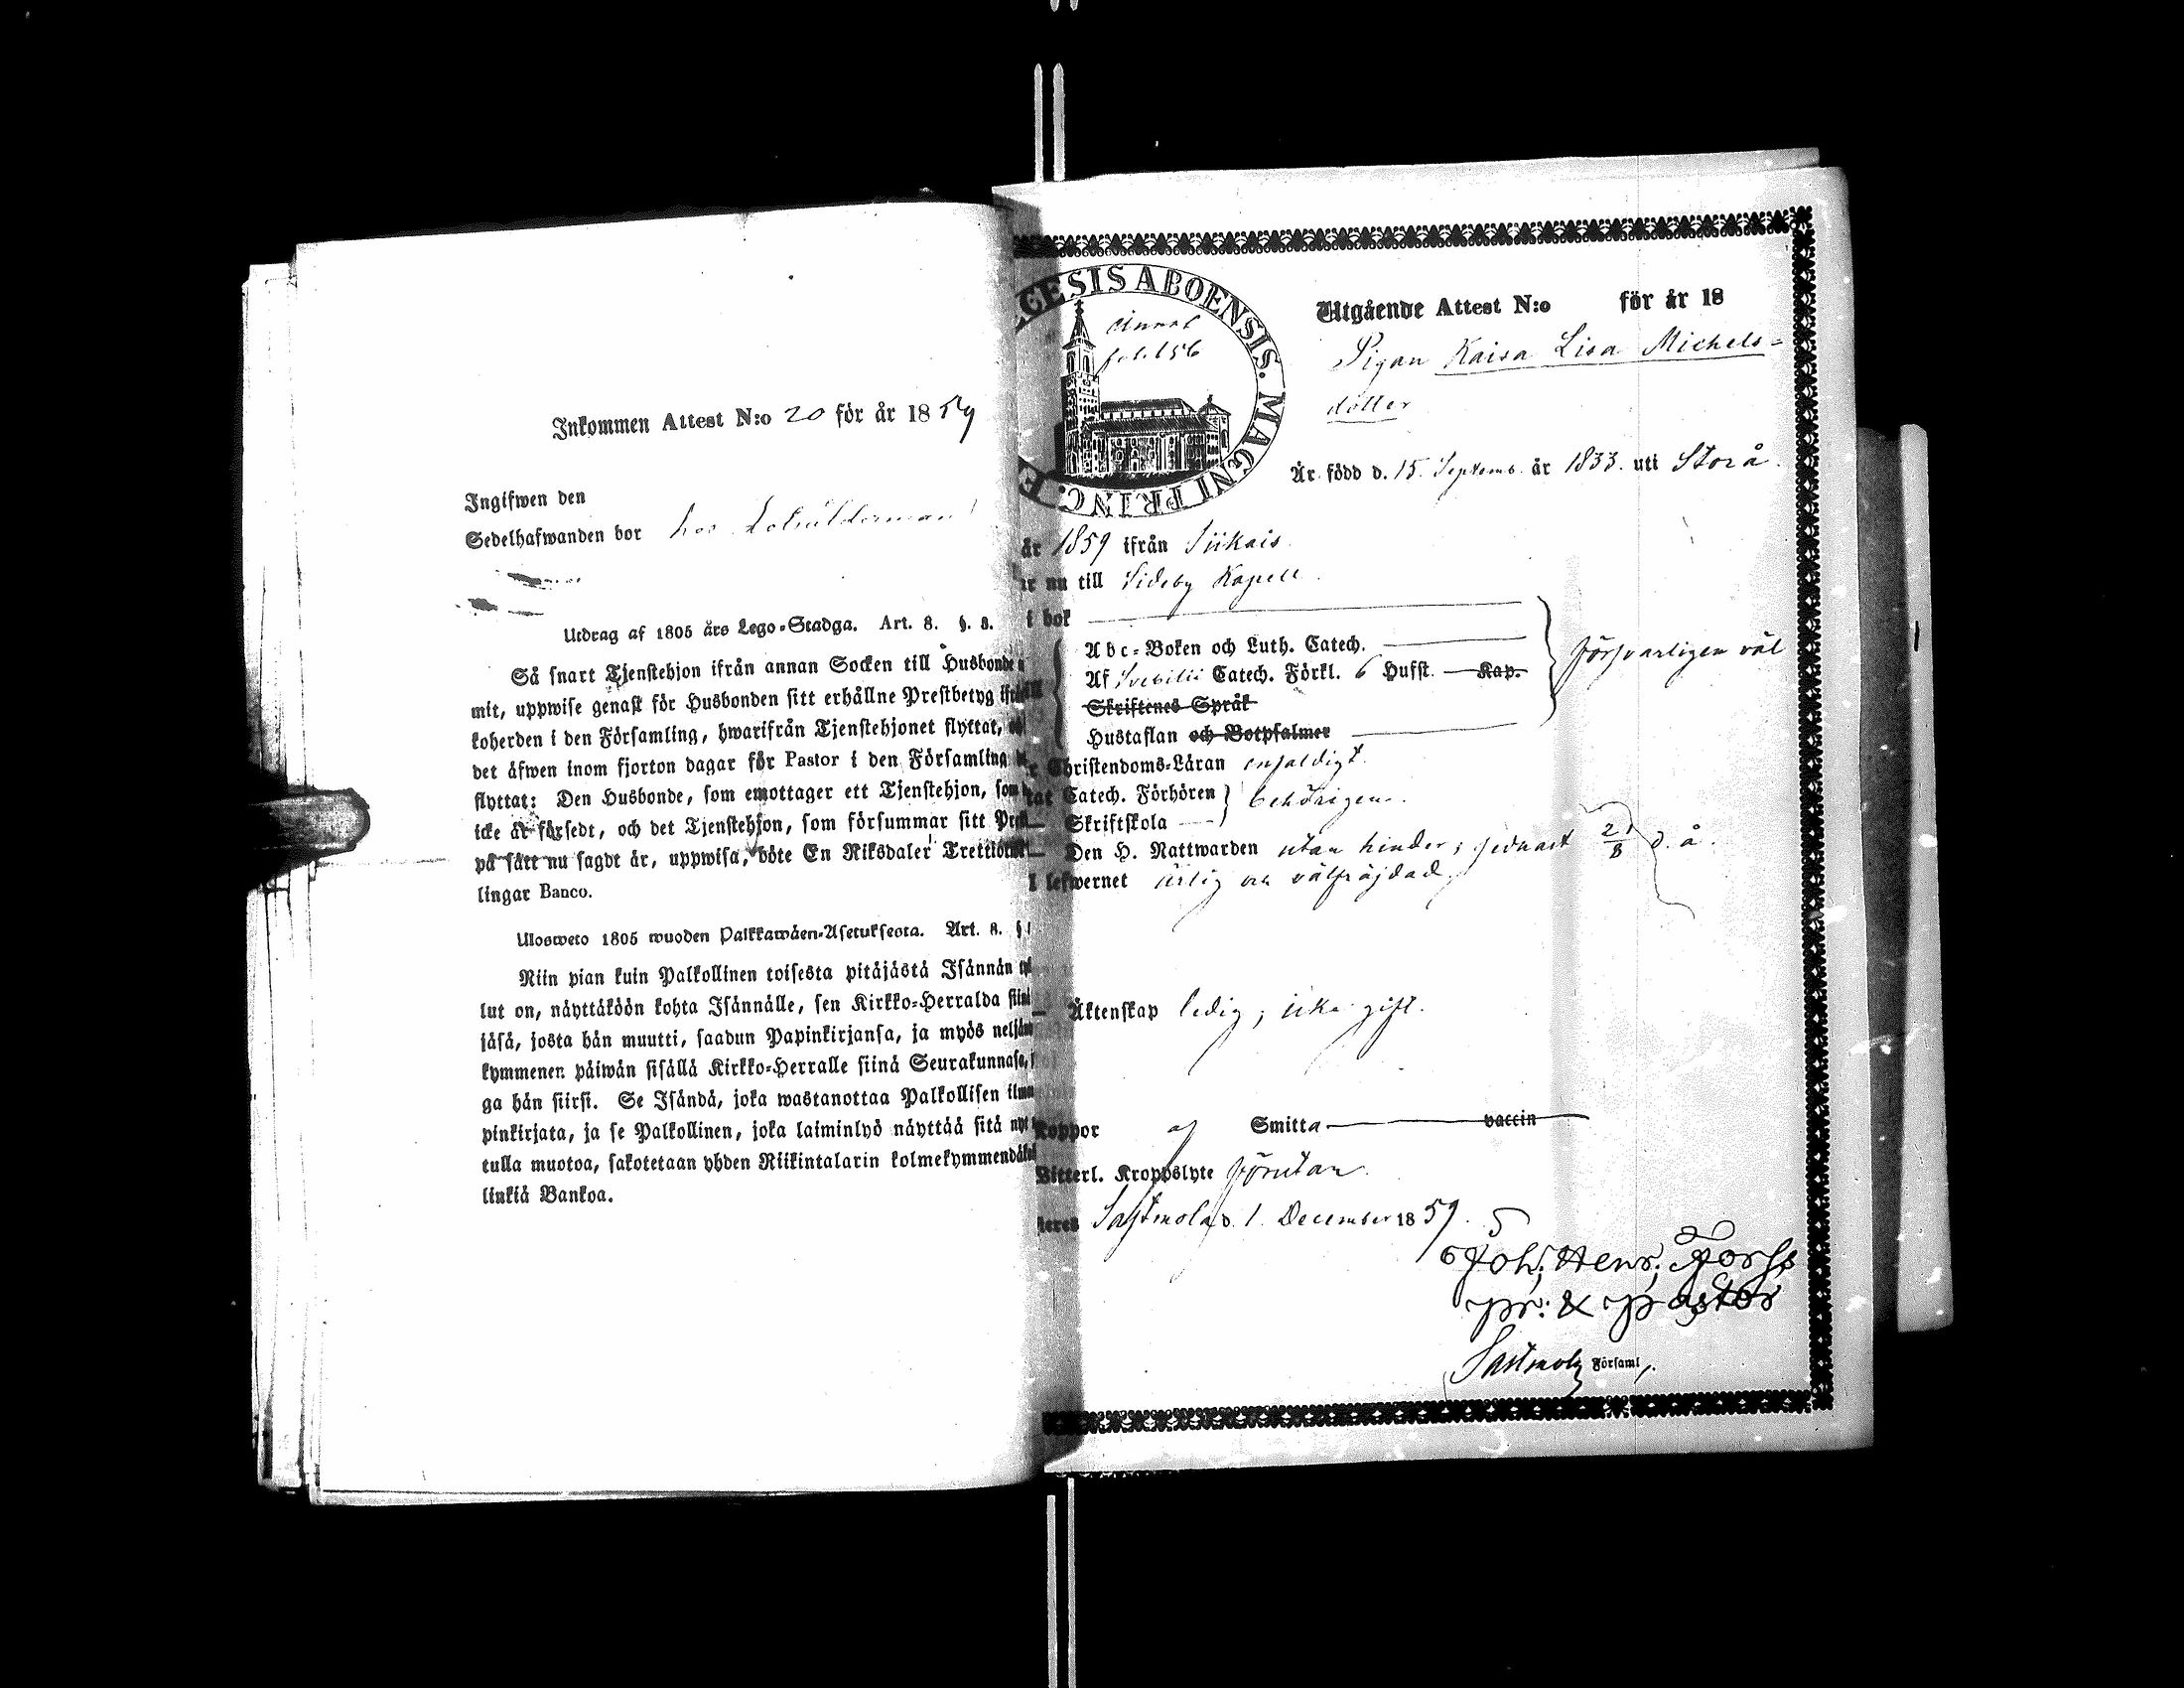 Inkommen Attest N:o 20 för år 1859
Ingifwen den
Sedelhafwanden bor hos
Utdrag af 1805 års Lego-Stadga. Art. 8. §. 8.
Så snart Tjenstehjon ifrån annan Socken till Husbonde
mit, uppwise genast för Husbonden sitt erhållne Prestbetyg
koherden i den Församling, hwarifrån Tjenstehjonet flyttat,
det äfwen inom fjorton dagar för Pastor i den Församling
flyttat: Den Husbonde, som emottager ett Tjenstehjon, som
icke är försedt, och det Tjenstehjon, som försummar sitt
på sätt nu sagdt är, uppwisa, böte En Riksdaler
lingar Banco.
Ulosweto 1805 wuoden Palkkawäen-Asetuksesta. Art. 8. §
Niin pian kuin Palkollinen toisesta pitäjästä Isännän
lut on, näyttäköön kohta Isännälle, sen Kirkko-Herralda
jäsä, josta hän muutti, saadun Papinkirjansa, ja myös
kymmenen päiwän sisällä Kirkko-Herralle siinä Seurakunnasa,
ga hän siirsi. Se Isändä, joka wastanottaa Palkollisen
pinkirjata, ja se Palkollinen, joka laiminlyö näyttää sitä
tulla muotoa, sakotetaan yhden Riikintalarin
linkiä Bankoa.
CESIS ABOENSIS. MAGNI PRINC.
fol. 156
Utgående Attest N:o för år 18
Pigan Kaisa Lisa Michels-
dotter
Är född d. 15 Septemb. år 1833. uti Storå.
år 1859 ifrån Siikais
nu till Sideby Kapell.
i bok
Abc-Boken och Luth. Catech.
Af Svebilii Catech. Förkl. 6 Hufst. Kap.
Skriftenes Språk
Hustaflan och Botpsalmer
försvarligen väl
Christendoms-Läran enfaldigt.
Catech. Förhören
Skriftskola
behörigen.
Den H. Nattwarden utan hinder; sednast 21/8 d. å.
I lefwernet ärlig och välfräjdad.
Äktenskap ledig; icke gift.
Koppor af Smitta vaccin
Witterl. Kroppslyte förutan.
Sastmola d. 1 December 1859.
Joh; Henr; Forss
pr: & pastor
Sastmola Församl.